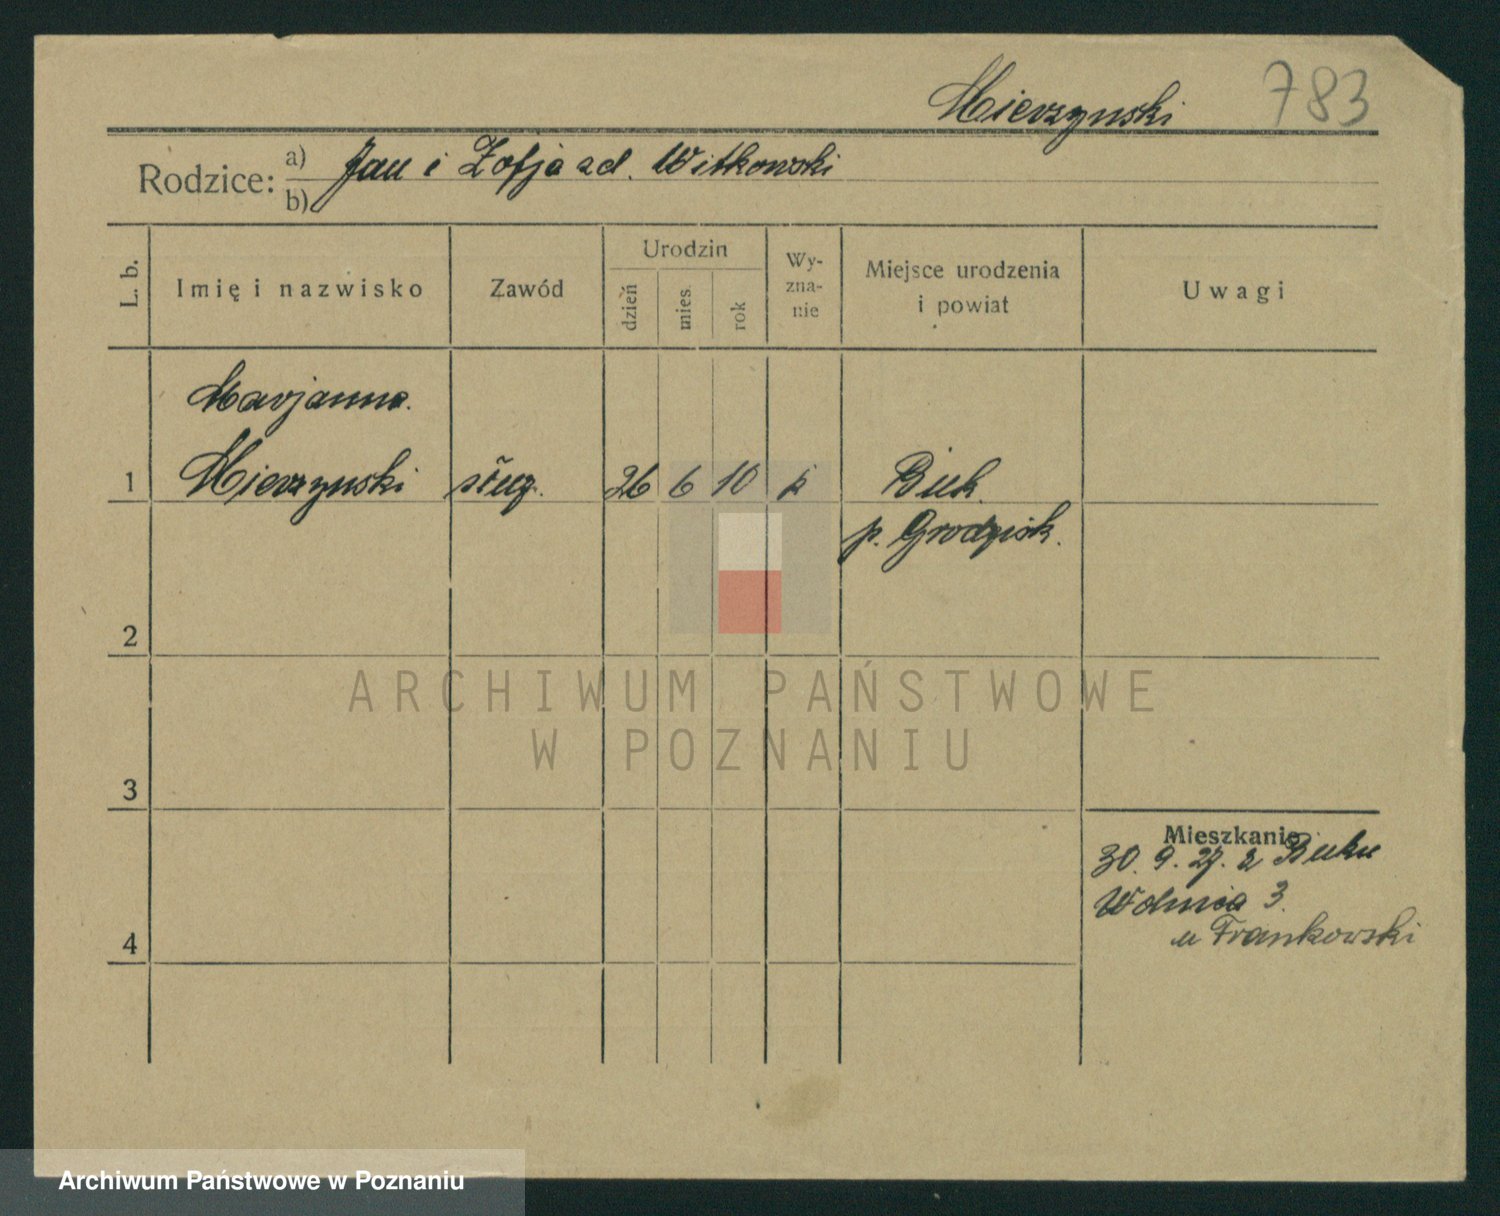 Mierzynski 783
Rodzice: a) Jan i Zofja zd. Witkowski
b)
L. b. Imię i nazwisko Zawód Urodzin dzień mies. rok Wy-zna-nie Miejsce urodzenia i powiat Uwagi
Marjanna
1 Mierzynski służ. 26 6 10 k Buk
p. Grodzisk.
2
ARCHIWUM PAŃSTWOWE
W POZNANIU
3
Mieszkanie
30. 9. 27. z Buku
Wolnica 3.
u Frankowski
4
Archiwum Państwowe w Poznaniu